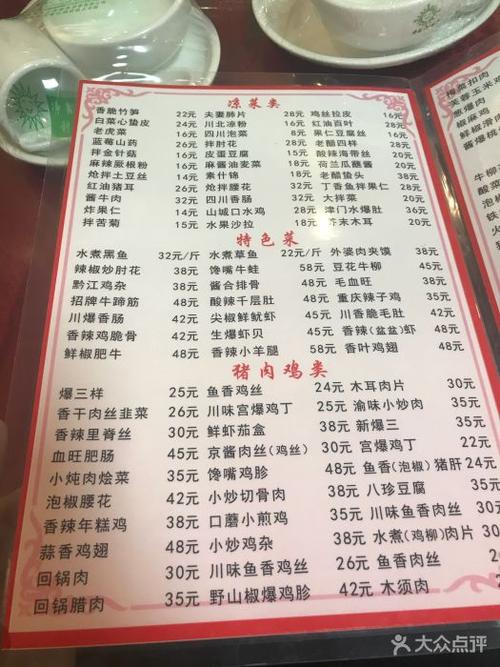 凉菜类
香脆竹笋 22元 夫妻肺片 28元 鸡丝拉皮 16元
白菜心蛰皮 24元 川北凉粉 14元 红油百叶 28元
老虎菜 14元 四川泡菜 8元 果仁豆腐丝 16元
蓝莓山药 22元 拌肘花 28元 老醋四样 28元
拌金针菇 16元 皮蛋豆腐 14元 酸辣海带丝 16元
麻辣蕨根粉 16元 麻酱油麦菜 18元 荷兰瓜蘸酱 20元
炝拌土豆丝 14元 素什锦 18元 老醋蛰头 38元
红油猪耳 28元 炝拌腰花 34元 丁香鱼拌果仁 28元
酱牛肉 32元 四川香肠 32元 大拌菜 20元
炸果仁 14元 山城口水鸡 28元 津门水爆肚
拌苦菊 16元 水果沙拉 28元 芥末木耳 20元
特色菜
水煮黑鱼 32元/斤 水煮草鱼 22元/斤 外婆肉夹馍 38元
辣椒炒肘花 38元 馋嘴牛蛙 58元 豆花牛柳 45元
黔江鸡杂 38元 酱合排骨 48元 毛血旺 38元
招牌牛蹄筋 48元 酸辣千层肚 48元 重庆辣子鸡 35元
川爆香肠 42元 尖椒鲜鱿虾 45元 川香脆毛肚 48元
香辣鸡脆骨 42元 生爆虾贝 45元 香辣(盆盆)虾
鲜椒肥牛 48元 香辣小羊腿 58元 香叶鸡翅 48元
猪肉鸡类
爆三样 25元 鱼香鸡丝 24元 木耳肉片 30元
香干肉丝韭菜 26元 川味宫爆鸡丁 25元 渝味小炒肉 35元
香辣里脊丝 30元 鲜虾茄盒 38元 新爆三 30元
血旺肥肠 45元 京酱肉丝(鸡丝) 30元 宫爆鸡丁 22元
小炖肉烩菜 35元 馋嘴鸡胗 42元 鱼香(泡椒)猪肝 24元
泡椒腰花 42元 小炒切骨肉 36元 八珍豆腐 38元
香辣年糕鸡 38元 口蘑小煎鸡 35元 川味鱼香肉丝 30元
蒜香鸡翅 48元 小炒鸡杂 38元 水煮(鸡柳)肉片 35元
回锅肉 30元 川味鱼香鸡丝 26元 鱼香肉丝 26元
回锅腊肉 35元 野山椒爆鸡胗 42元 木须肉
梅菜扣肉
葱爆肉
椒麻鸡
大众点评